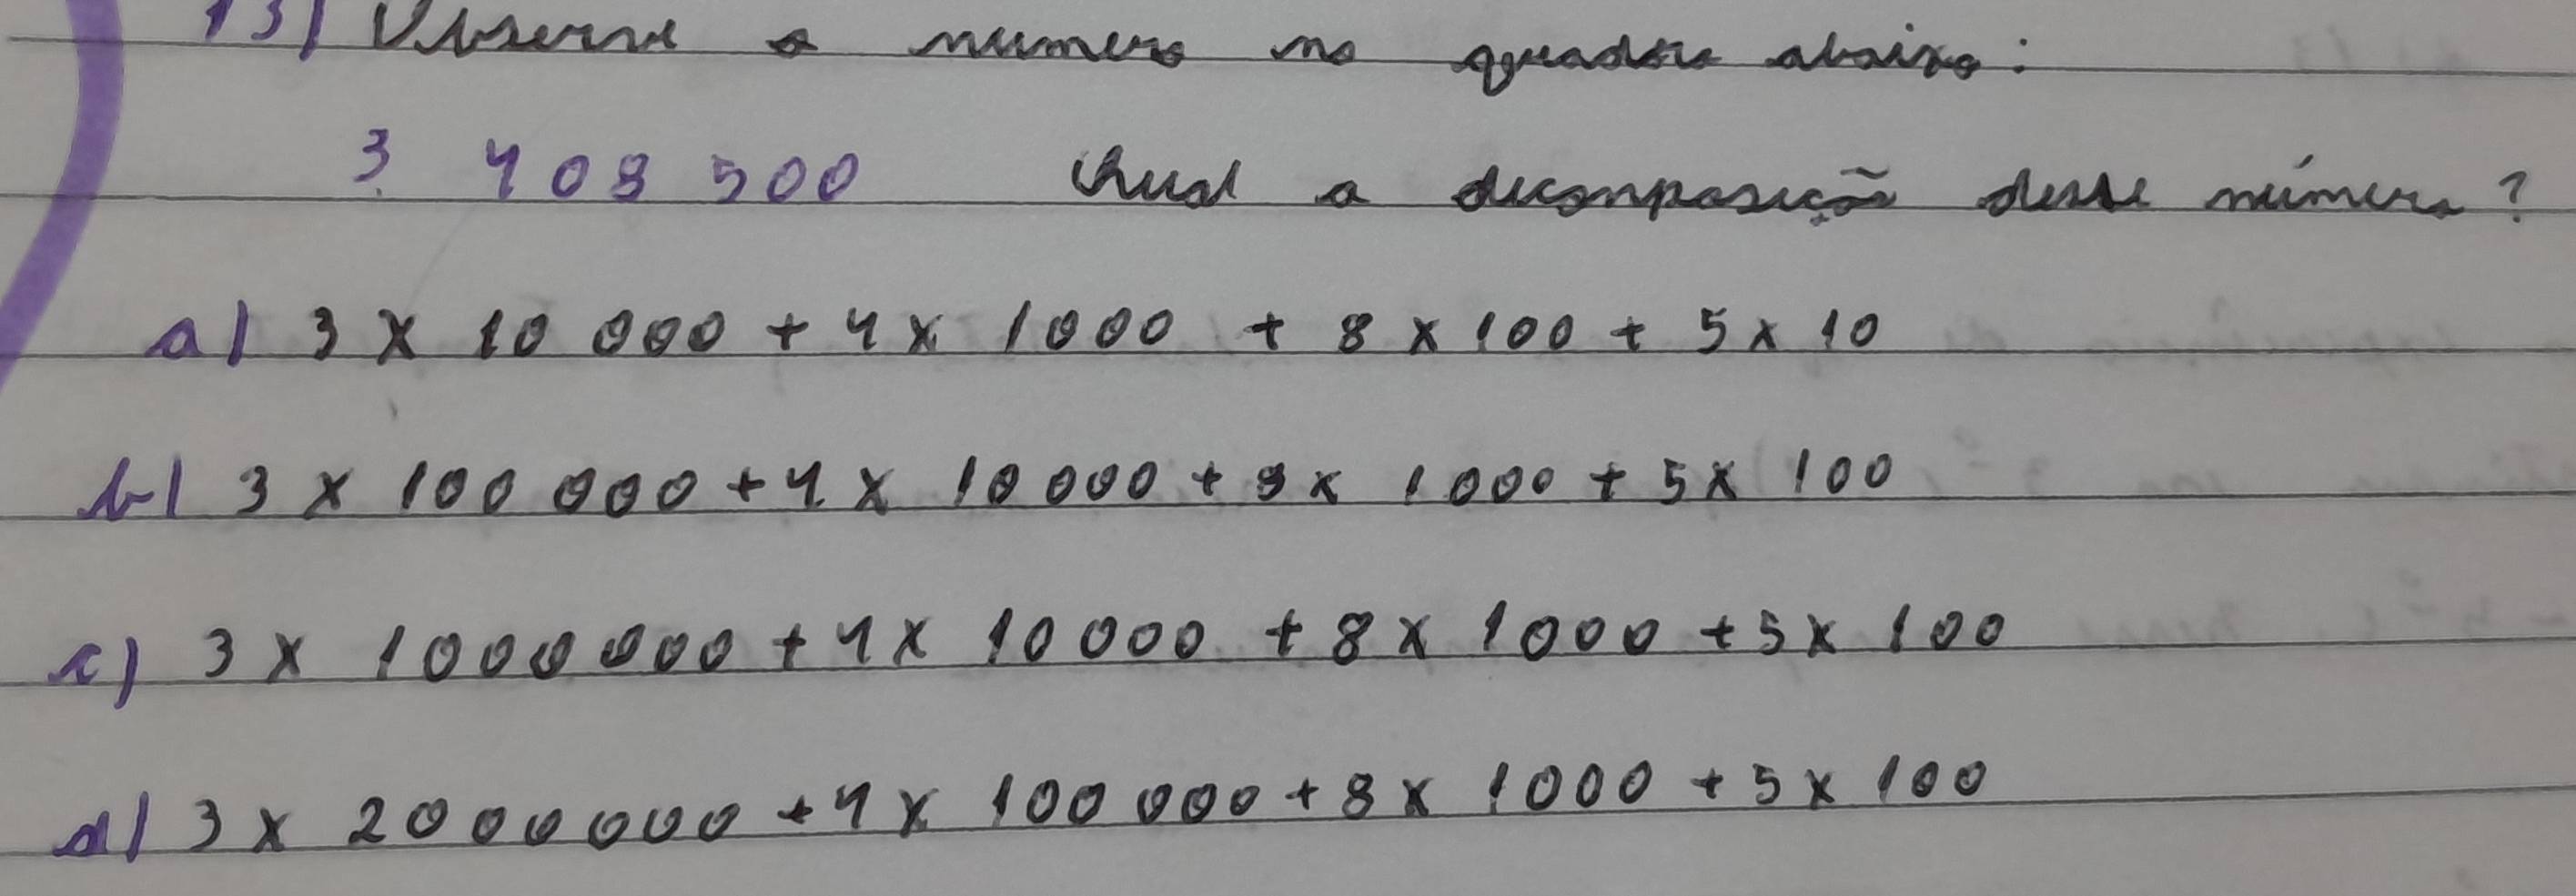 13) Observe o numero no quadro abaixo:
3 408 500 Qual a decomposição desse número?
a) 3 x 10 000 + 4 x 1000 + 8 x 100 + 5 x 10
b) 3 x 100 000 + 4 x 10 000 + 8 x 1000 + 5 x 100
c) 3 x 1000 000 + 4 x 10 000 + 8 x 1000 + 5 x 100
d) 3 x 2000 000 + 4 x 100 000 + 8 x 1000 + 5 x 100